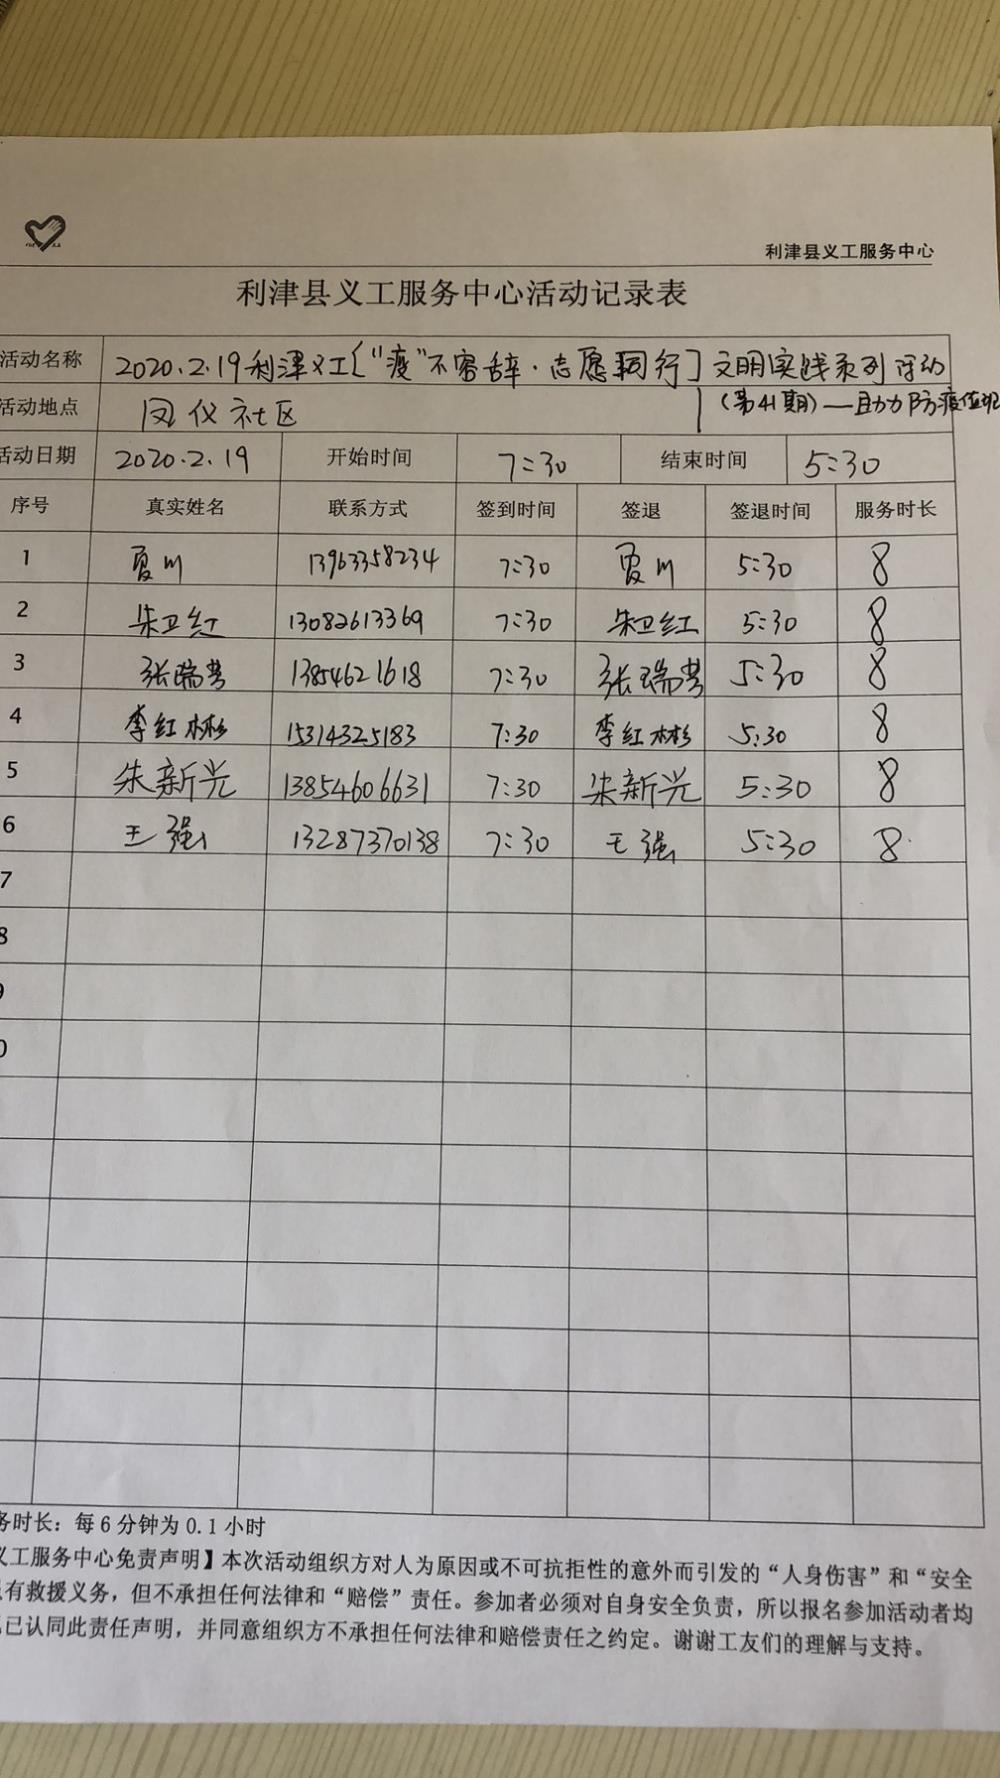 利津县义工服务中心
利津县义工服务中心活动记录表
活动名称 2020.2.19利津义工["疫"不容辞·志愿同行]文明实践系列活动
(第41期)—助力防疫值班
活动地点 凤仪社区
活动日期 2020.2.19 开始时间 7:30 结束时间 5:30
序号 真实姓名 联系方式 签到时间 签退 签退时间 服务时长
1 夏川 13963358234 7:30 夏川 5:30 8
2 朱卫红 13082613369 7:30 朱卫红 5:30 8
3 张瑞芳 13854621618 7:30 张瑞芳 5:30 8
4 李红彬 15314325183 7:30 李红彬 5:30 8
5 朱新兴 13854606631 7:30 朱新兴 5:30 8
6 王强 13287370138 7:30 王强 5:30 8
7
8
9
0
务时长：每6分钟为0.1小时
义工服务中心免责声明】本次活动组织方对人为原因或不可抗拒性的意外而引发的“人身伤害”和“安全
有救援义务，但不承担任何法律和“赔偿”责任。参加者必须对自身安全负责，所以报名参加活动者均
已认同此责任声明，并同意组织方不承担任何法律和赔偿责任之约定。谢谢工友们的理解与支持。